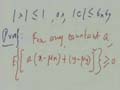 |ρ| ≤ 1, or, |c| ≤ σxσy
Proof: For any constant a,
E{[a(x-μx)+(y-μy)]²} ≥ 0